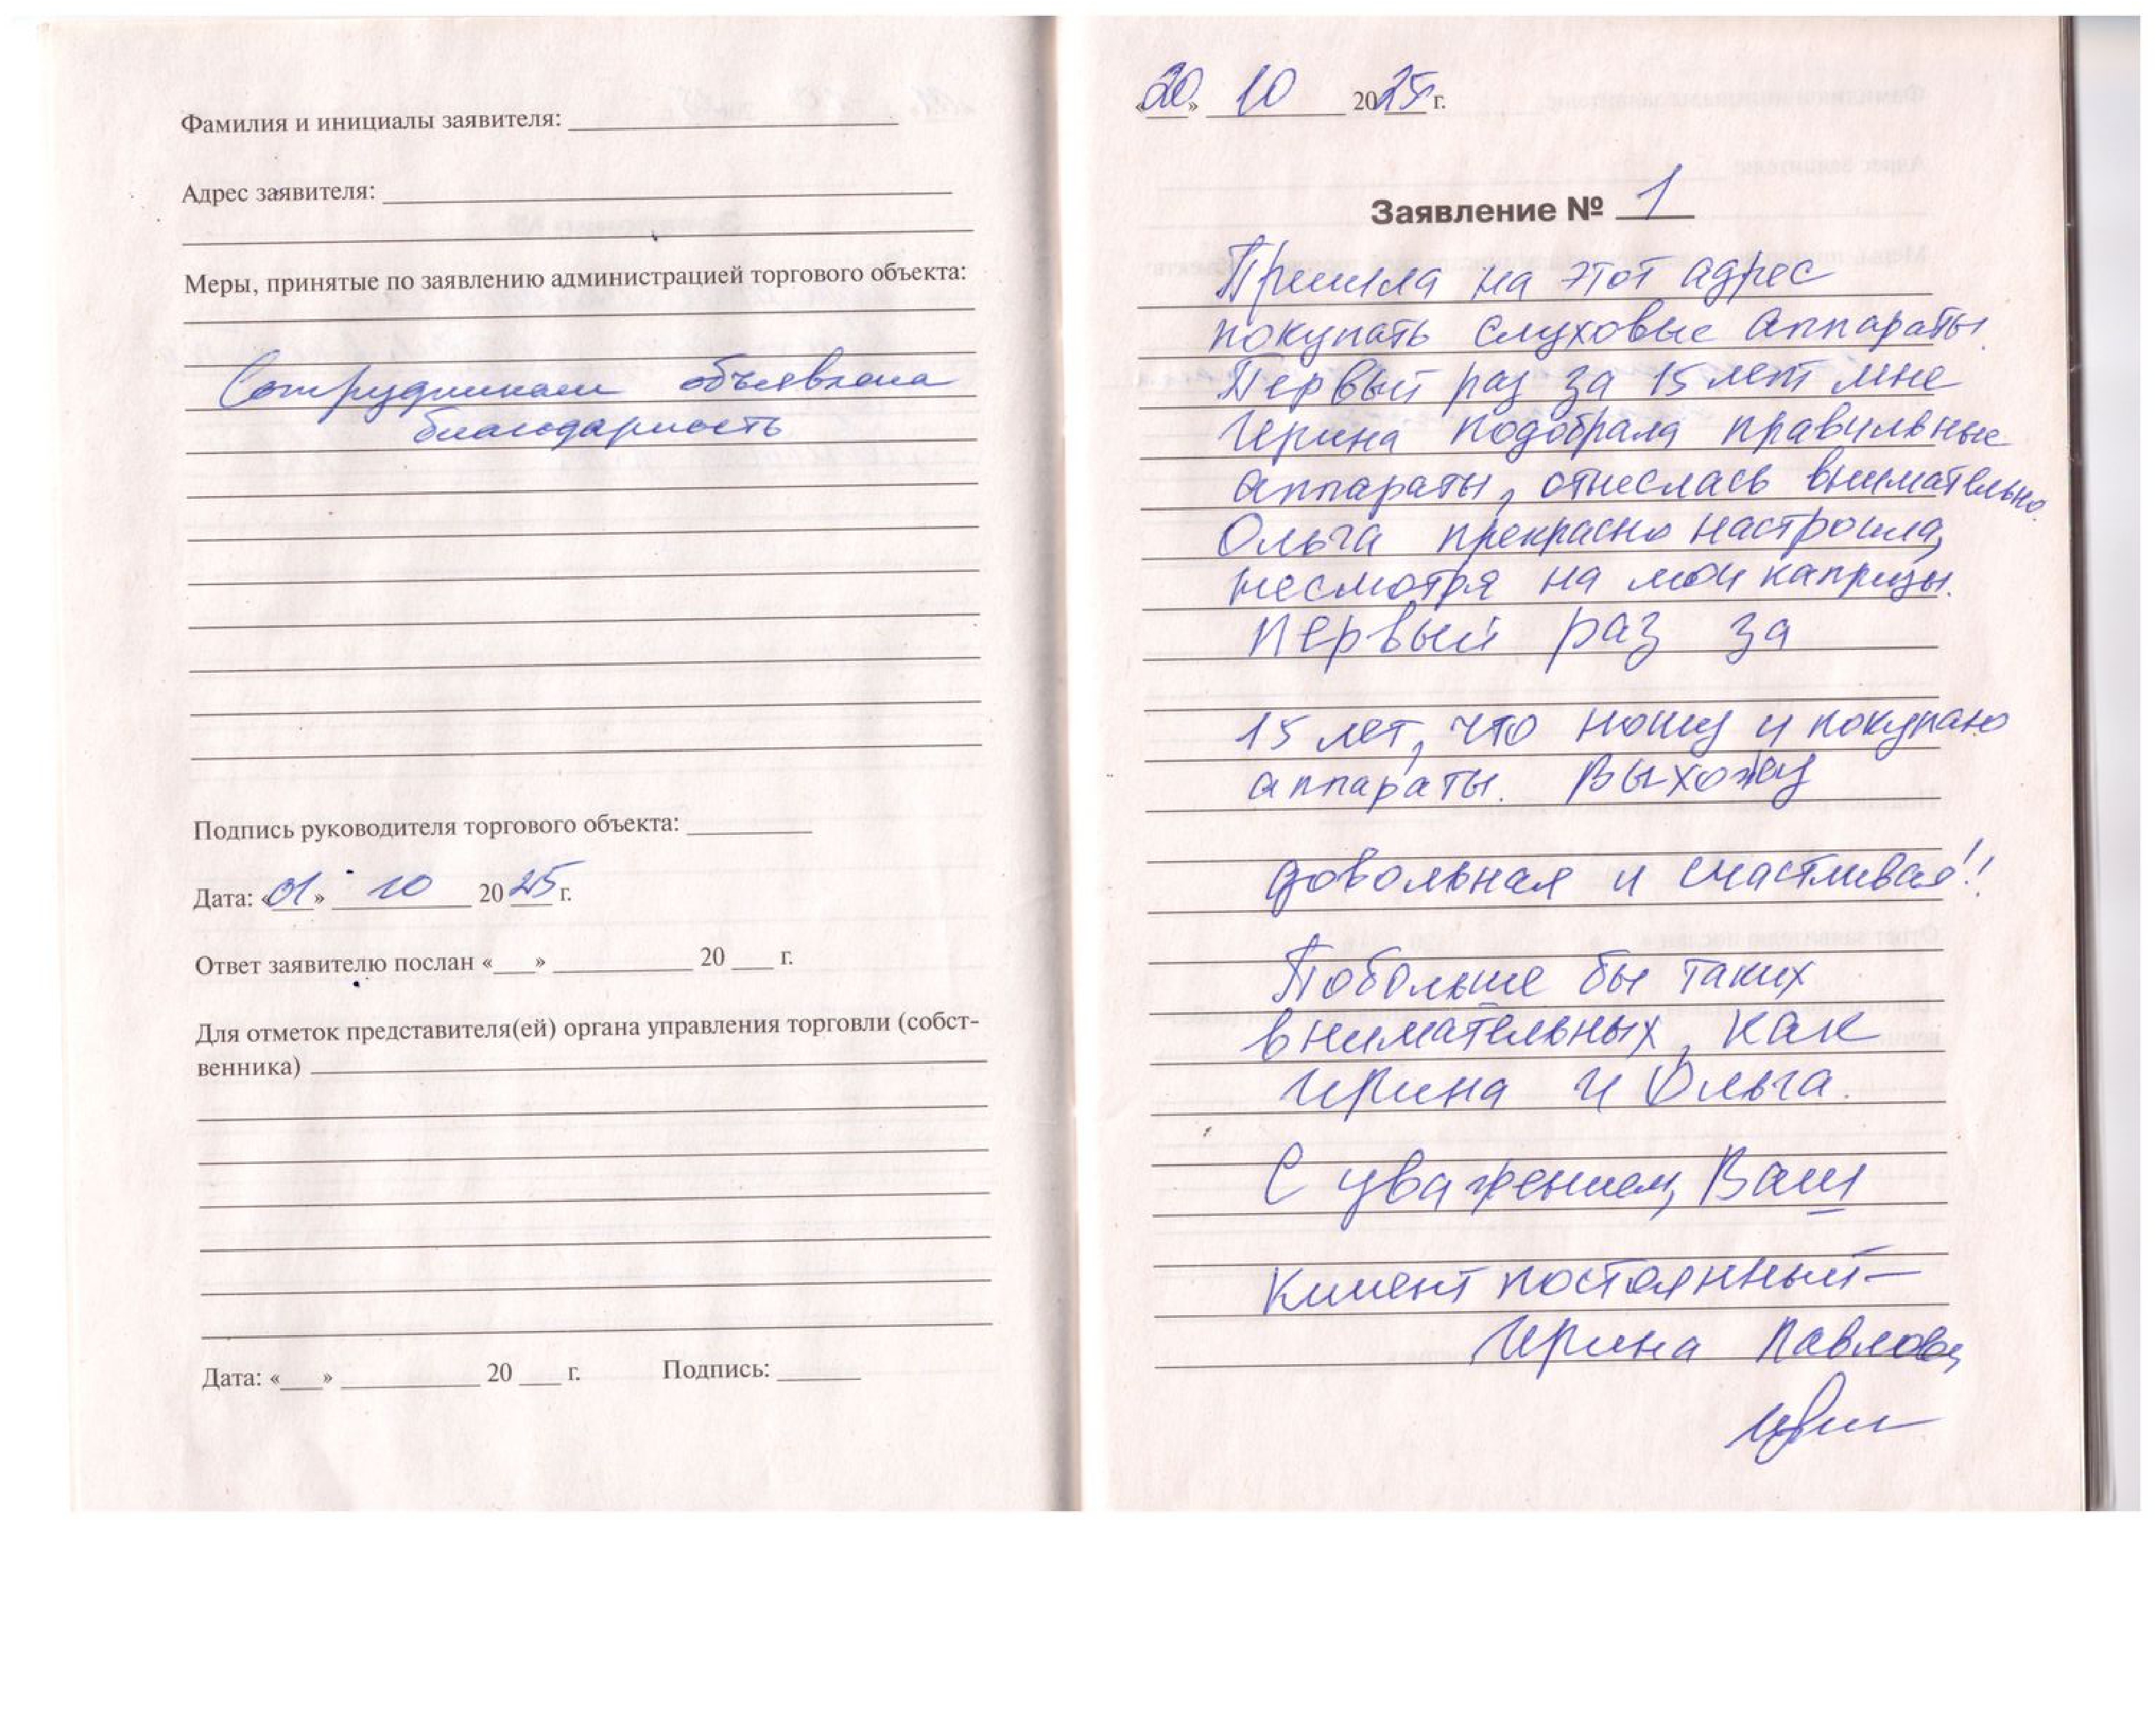 Фамилия и инициалы заявителя:
Адрес заявителя:
Меры, принятые по заявлению администрацией торгового объекта:
Сотрудникам объявлена
благодарность
Подпись руководителя торгового объекта:
Дата: «01» 10 2025 г.
Ответ заявителю послан «___» 20 ___ г.
Для отметок представителя(ей) органа управления торговли (собст-
венника)
Дата: «___» 20 ___ г. Подпись:
«20» 10 2025 г.
Заявление № 1
Пришла на этот адрес
покупать слуховые аппараты.
Первый раз за 15 лет мне
Ирина подобрала правильные
аппараты, отнеслась внимательно.
Ольга прекрасно настроила,
несмотря на мои капризы.
Первый раз за
15 лет, что ношу и покупаю
аппараты. Выхожу
довольная и счастливая!!
Побольше бы таких
внимательных, как
Ирина и Ольга.
С уважением, Ваш
Клиент постоянный –
Ирина